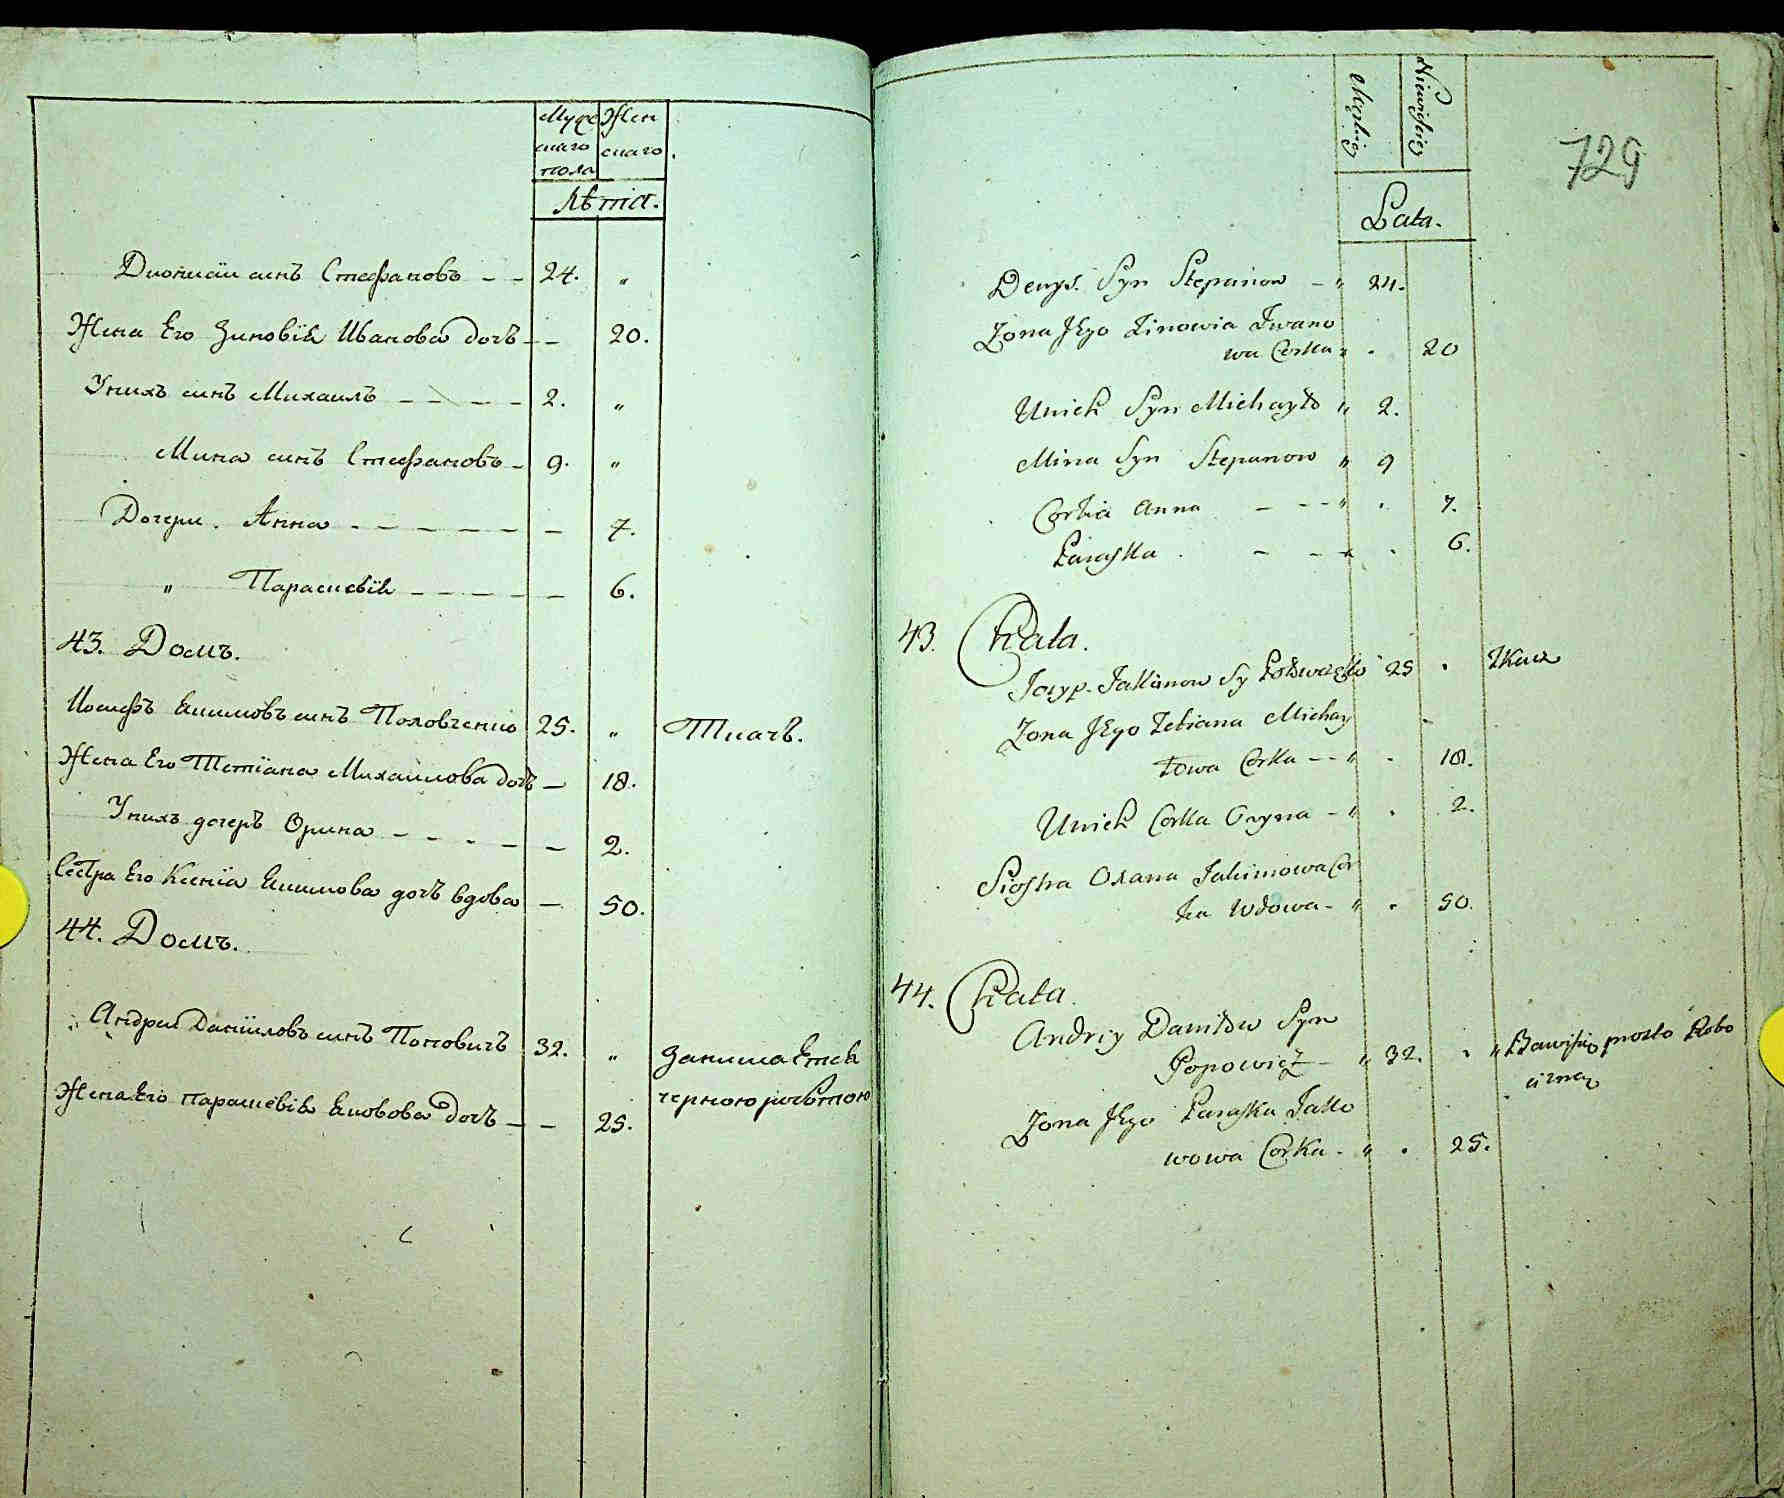 Мужескаго пола
Женскаго.
Лѣта.
Дионисiи синъ Стефановъ — — 24. „
Жена Его Зиновiя Иванова дочъ — — 20.
Унихъ синъ Михаилъ — — — — 2. „
Мина синъ Стефановъ — 9. „
Дочери. Анна — — — — — — 7.
„ Параскевiя — — — — — 6.
43. Домъ.
Иосифъ Якимовъ синъ Половченко 25. „ Ткачъ.
Жена Его Тетiана Михаилова дочъ — 18.
Унихъ дочеръ Орина — — — — — 2.
Сестра Его Ксенiя Якимова дочъ вдова — 50.
44. Домъ.
Андреи Данiиловъ синъ Поповичъ 32. „ Занимается
черною роботою
Жена Его Параскевiя Яковова дочъ — — 25.
Męskiey
Niewieściey
729
Lata.
Denys. Syn Stepanow — „ 24.
Zona Jego Zinowia Iwano
wa Corka „ . 20
Unich Syn Michayło „ 2.
Mina Syn Stepanow „ 9
Corka Anna — — — „ . 7.
Paraska . — — „ . 6.
43. Chata.
Josyp. Jakimow Sy 25 . Tkacz
Zona Jego Tetiana Michay
łowa Corka — — „ . 18.
Unich Corka Oryna — „ . 2.
Siostra Oxana Jakimowa Cor
ka Wdowa — „ . 50.
44. Chata.
Andriy Daniłow Syn
Popowicz — „ 32. . „ Bawisię prosto Robo
cizną
Zona Jego Paraska Jako
wowa Corka — „ . 25.